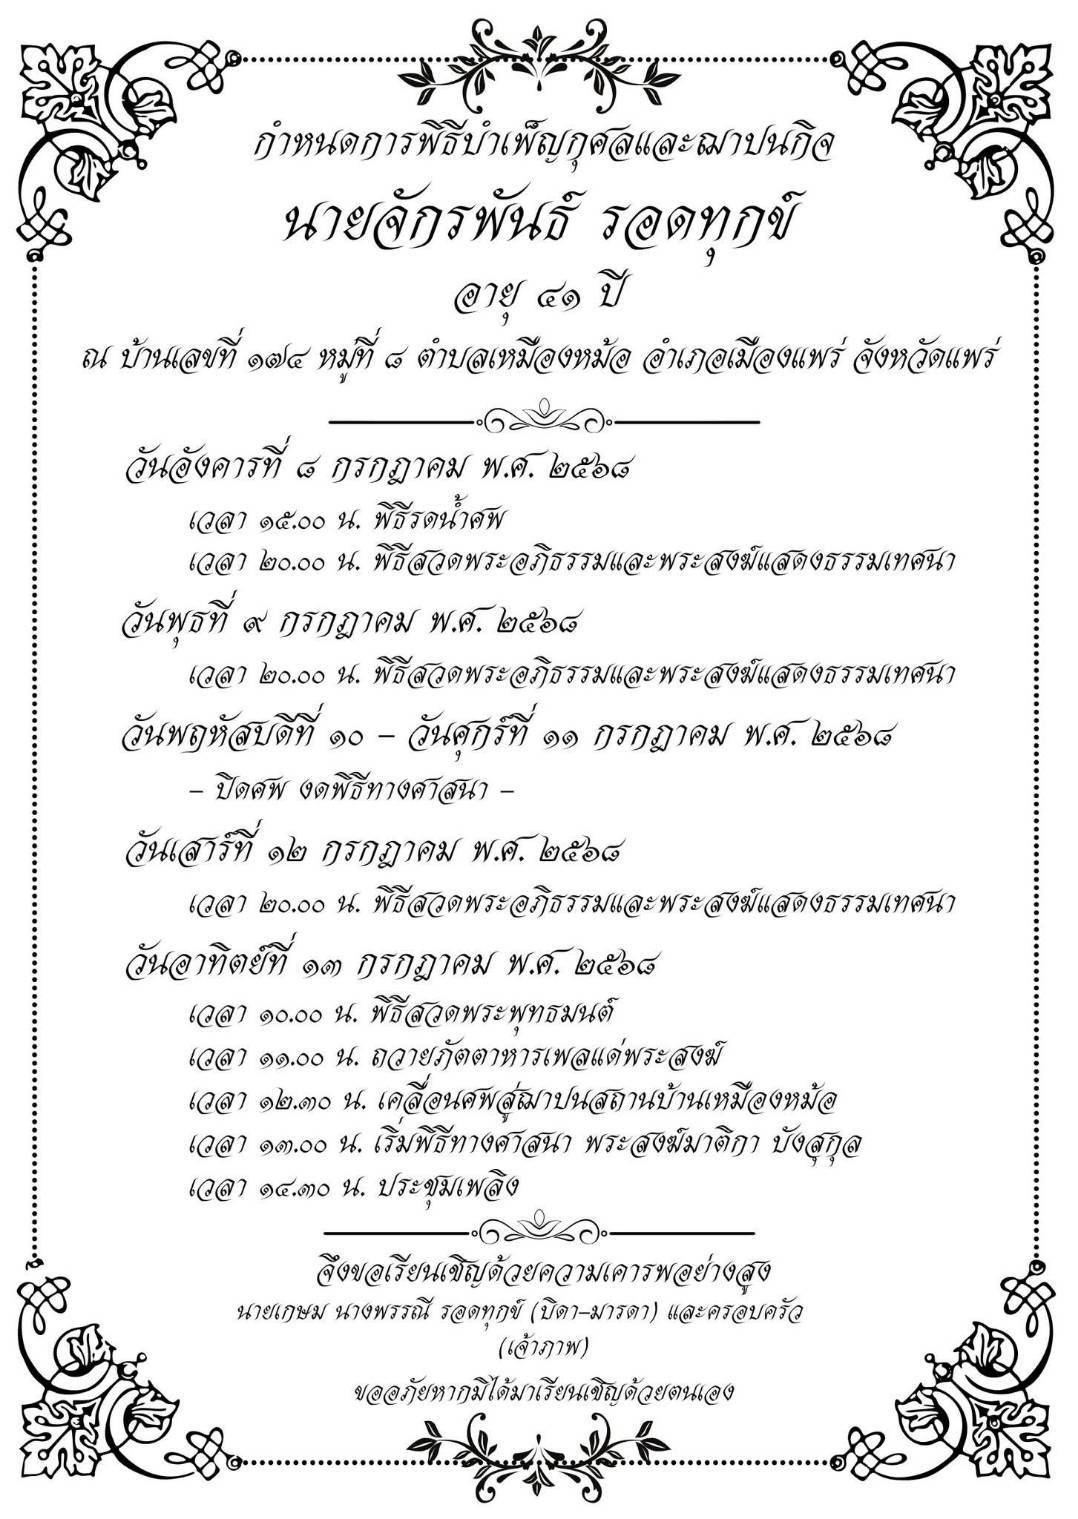 กำหนดการพิธีบำเพ็ญกุศลและฌาปนกิจ
นายจักรพันธ์ รอดทุกข์
อายุ ๔๑ ปี
ณ บ้านเลขที่ ๑๗๔ หมู่ที่ ๘ ตำบลเหมืองหม้อ อำเภอเมืองแพร่ จังหวัดแพร่
วันอังคารที่ ๘ กรกฎาคม พ.ศ. ๒๕๖๘
เวลา ๑๕.๐๐ น. พิธีรดน้ำศพ
เวลา ๒๐.๐๐ น. พิธีสวดพระอภิธรรมและพระสงฆ์แสดงธรรมเทศนา
วันพุธที่ ๙ กรกฎาคม พ.ศ. ๒๕๖๘
เวลา ๒๐.๐๐ น. พิธีสวดพระอภิธรรมและพระสงฆ์แสดงธรรมเทศนา
วันพฤหัสบดีที่ ๑๐ – วันศุกร์ที่ ๑๑ กรกฎาคม พ.ศ. ๒๕๖๘
– ปิดศพ งดพิธีทางศาสนา –
วันเสาร์ที่ ๑๒ กรกฎาคม พ.ศ. ๒๕๖๘
เวลา ๒๐.๐๐ น. พิธีสวดพระอภิธรรมและพระสงฆ์แสดงธรรมเทศนา
วันอาทิตย์ที่ ๑๓ กรกฎาคม พ.ศ. ๒๕๖๘
เวลา ๑๐.๐๐ น. พิธีสวดพระพุทธมนต์
เวลา ๑๑.๐๐ น. ถวายภัตตาหารเพลแด่พระสงฆ์
เวลา ๑๒.๓๐ น. เคลื่อนศพสู่ฌาปนสถานบ้านเหมืองหม้อ
เวลา ๑๓.๐๐ น. เริ่มพิธีทางศาสนา พระสงฆ์มาติกา บังสุกุล
เวลา ๑๔.๓๐ น. ประชุมเพลิง
จึงขอเรียนเชิญด้วยความเคารพอย่างสูง
นายเกษม นางพรรณี รอดทุกข์ (บิดา–มารดา) และครอบครัว
(เจ้าภาพ)
ขออภัยหากมิได้มาเรียนเชิญด้วยตนเอง